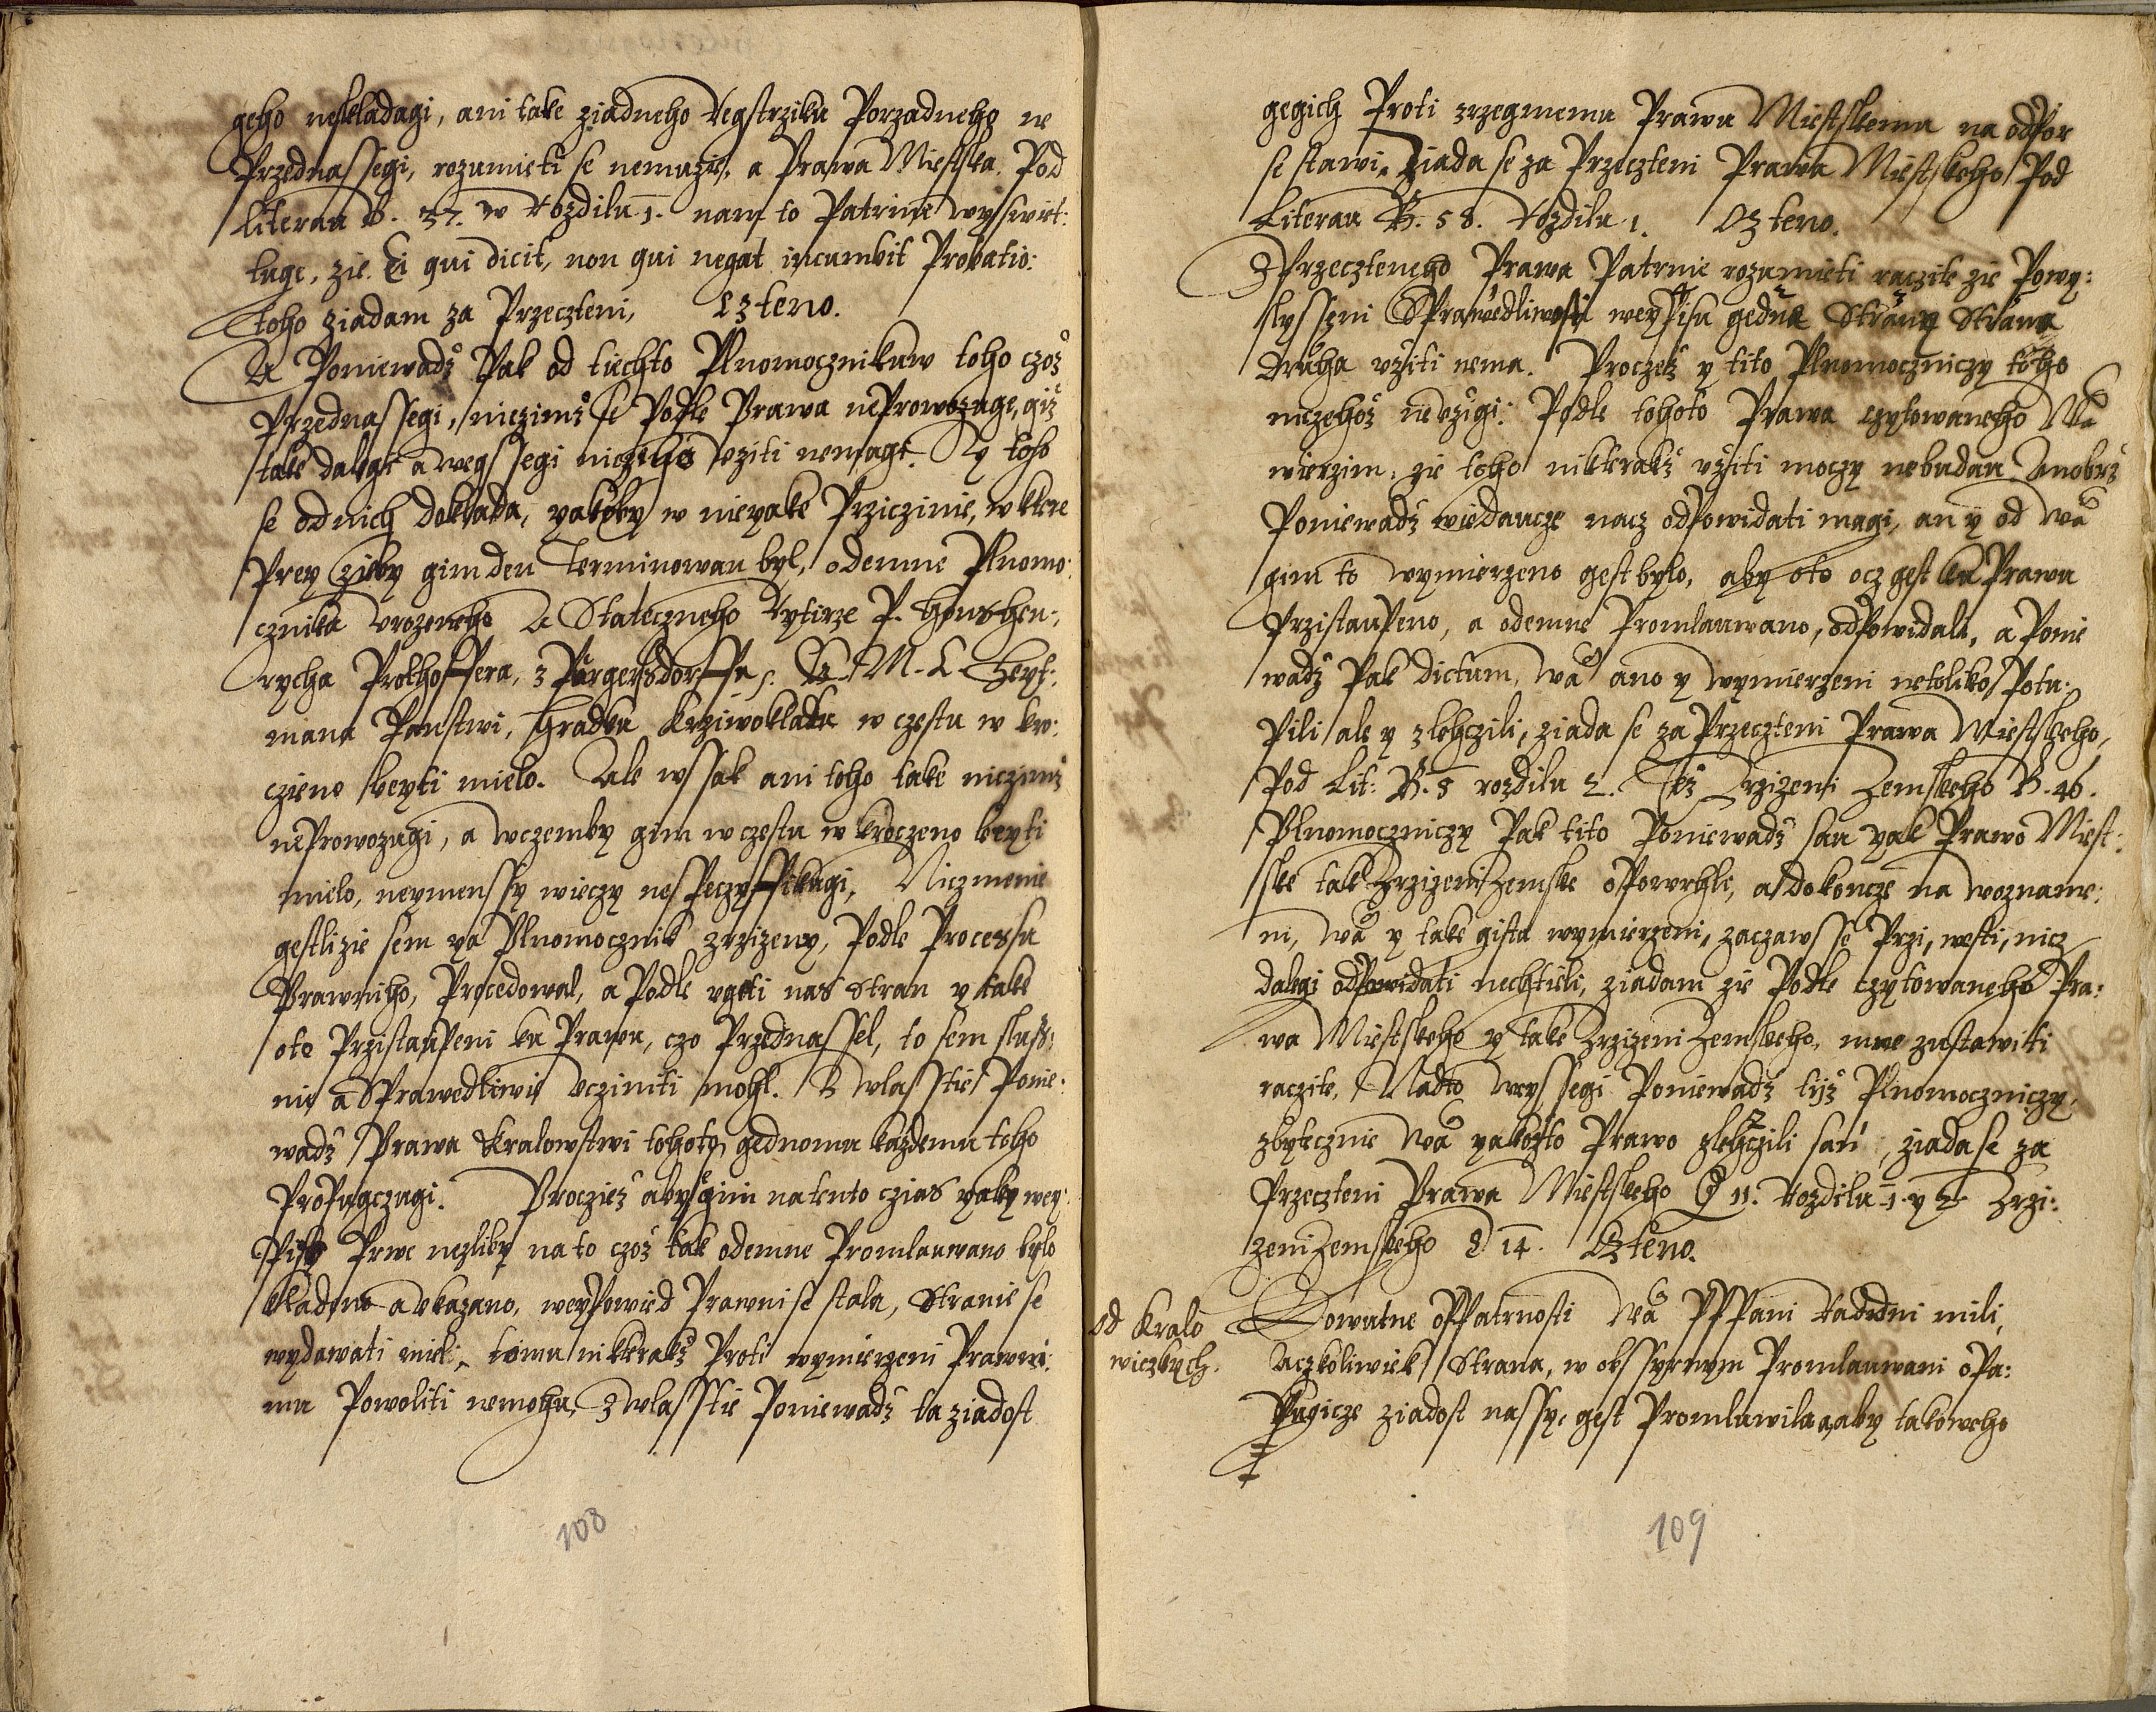 geho neskladagi, ani take ziadneho Regstrziku Porzadneho ne
Przednassegi, rozumieti se nemuzie, a Prawa Miestska Pod
Literau B. 37. w Rozdilu 1. nam to Patrnie wyswiet:
luge, zie. Ei qui dicit, non qui negat incumbit Probatio:
toho ziadam za Przeczteni, Czteno.
A Poniewadz Pak od tiechto Plnomocznikuw toho czoz
Przednassegi, niczimz se Podle Prawa neProwozuge, giz
take dalegi a wegssegi niczehoz uziti nemagi. Ry toho
se od nich doklada, yakoby w nieyake Prziczinie, w ktere
Prey zieby gim den Terminowan byl, odemne Plnomo:
cznika Urozeneho A Stateczneho Rytirze P. Hons Hen:
rycha Prokhoffera, z Purgersdorffu J. C. M. C. Heyt:
mana Panstwi, Hradku Krziwoklatu w czestu w kro:
czieno beyti mielo. Ale wssak ani toho take niczimz
neProwozugi, a wczemby gim w czestu w kroczeno beyti
mielo, neymenssy wieczy nespeczyffikugi, Niczmenie
gestlizie sem ya Plnomocznik zrzizeny, Podle Processu
Prawniho, Procedowal, a Podle ugeti nas stran y take
oto Przistaupeni ku Prawu, czo Przednassel, to sem slus:
nie a Sprawedliwie ucziniti mohl. Z wlasstie Ponie:
wadz Prawa Kralowstwi tohoto, gednomu kazdemu toho
Propugczugi. Procziez abych gim na tento czias yaky wey:
Pisy Prwe nezliby na to czoz tak odemne Promlauwano bylo
kladeno a ukazano, weypowied Prawni se stala, Stranie se
wydawati mieli, tomu nikterakz Proti wymierzeni Prawni:
mu Powoliti nemohu, Z wlasstie Poniewadz ta ziadost
108
gegich Proti zrzegmemu Prawu Miestskemu na odpor
se stawi, Ziada se za Przeczteni Prawa Miestskeho Pod
Literau B. 58. Rozdilu 1. Czteno.
Z Przeczteneho Prawa Patrnie rozumieti raczite zie Powy:
slysseni Sprawedliwosti weypisu gedne Strany Strana
druha uziti nema. Proczez y tito Plnomoczniczy toho
niczehoz neuzigi: Podle tohoto Prawa czytowaneho Wa
wierzim, zie toho nikterakz uziti moczy nebudau
Poniewadz wiedaucze nacz odpowidati magi, an y od Wa
gim to wymierzeno gest bylo, aby oto ocz gest ku Prawu
Przistaupeno, a odemne Promlauwano, odpowidali, a Ponie
wadz Pak dictum, Wa ano y wymierzeni netoliko Potu:
Pili ale y zlehczili, ziada se za Przeczteni Prawa Miestskeho,
Pod Lit: B. 5 rozdilu 2. Tez Zrzizeni Zemskeho B. 46.
Plnomoczniczy Pak tito Poniewadz sau yak Prawo Miest:
ske tak Zrzizeni Zemske opowrhli, a dokoncze na wozname:
ni, Wa y take gista wymierzeni, zaczawsse Przi, westi, nicz
dalegi odpowidati nechtieli, ziadam zie Podle czytowaneho Pra:
wa Miestskeho y take Zrzizeni Zemskeho, mne zustawiti
raczite, Nadto weyssegi Poniewadz tijz Plnomoczniczy,
zbytecznie Wa yakozto Prawo zlehczili sau, ziada se za
Przeczteni Prawa Miestskeho 11. Rozdilu 1. y 2. Zrzi:
zeni Zemskeho D 14. Czteno.
od Kralo
wiczkych.
Slowutne opatrnosti Wa PPPani Raddni mili,
Aczkoliwiek Strana, w obssyrnym Promlauwani oPa:
kugicze ziadost nassy, gest Promluwila, aby takoweho
109